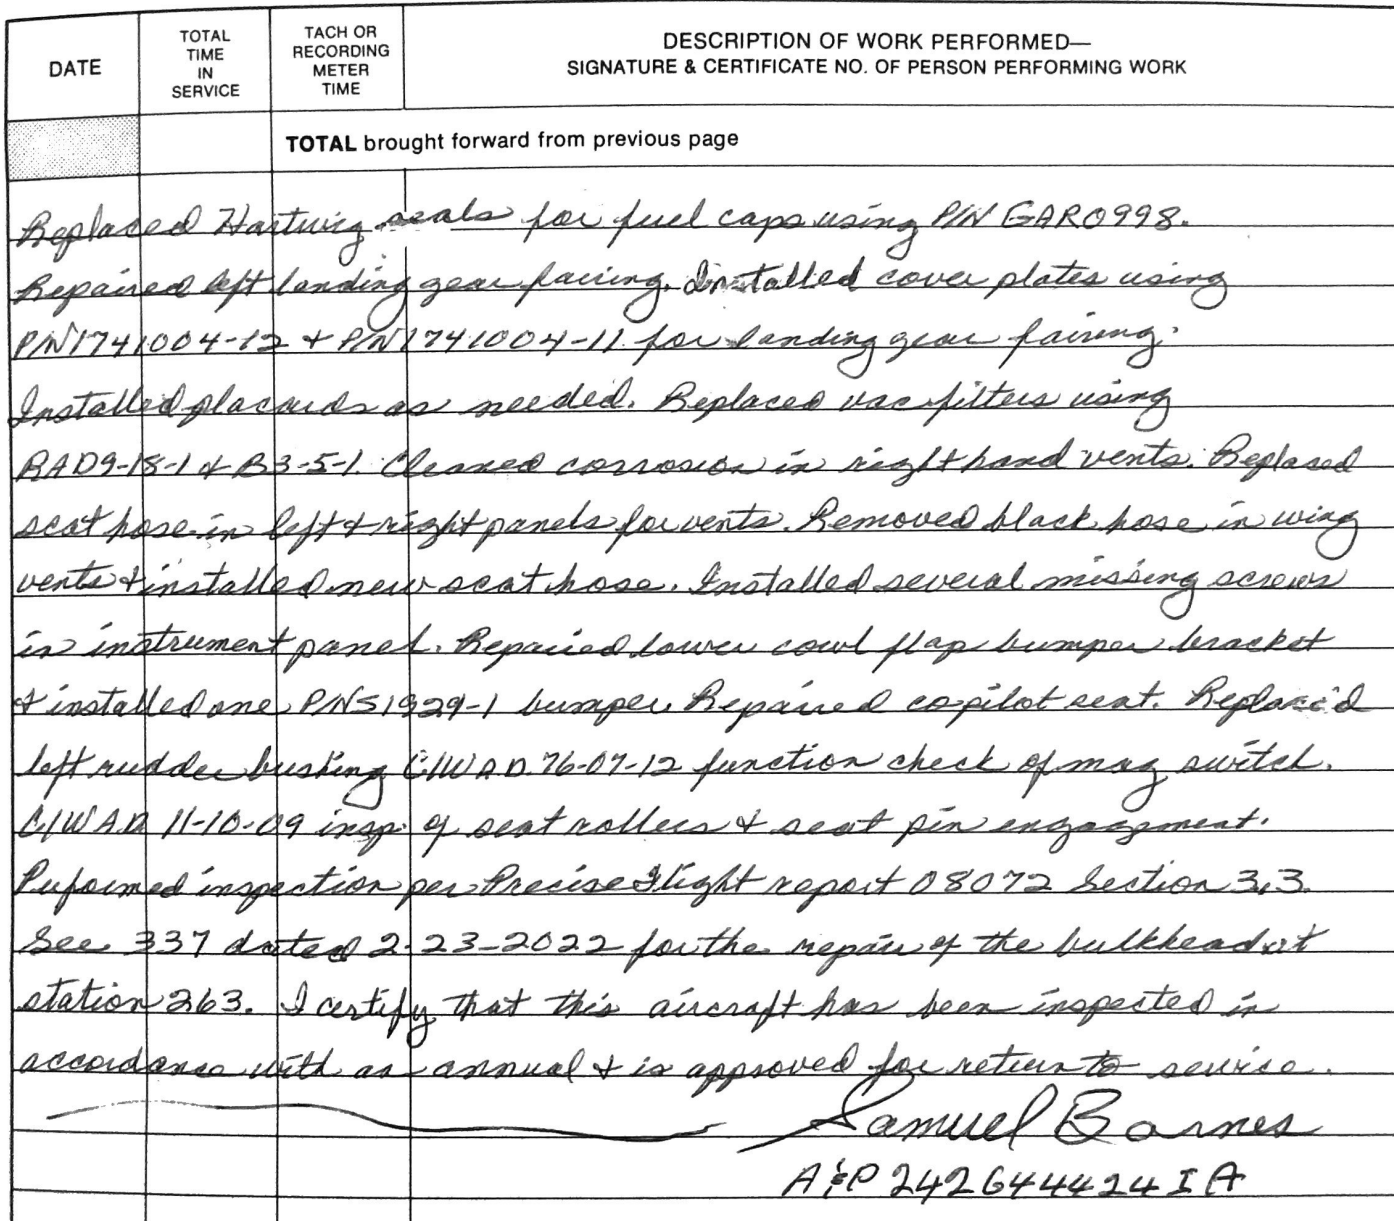 DATE
TOTAL
TIME
IN
SERVICE
TACH OR
RECORDING
METER
TIME
DESCRIPTION OF WORK PERFORMED—
SIGNATURE & CERTIFICATE NO. OF PERSON PERFORMING WORK
TOTAL brought forward from previous page
Replaced Hartwig seals for fuel caps using P/N GAR0998.
Repaired left landing gear fairing. Installed cover plates using
P/N 1741004-12 + P/N 1741004-11 for landing gear fairing.
Installed placards as needed. Replaced vac filters using
RAD9-18-1 + B3-5-1. Cleaned corrosion in right hand vents. Replaced
scat hose in left + right panels for vents. Removed black hose in wing
vents + installed new scat hose. Installed several missing screws
in instrument panel. Repaired lower cowl flap bumper bracket
+ installed one P/N S1929-1 bumper. Repaired copilot seat. Replaced
left rudder bushing C/W A.D. 76-07-12 function check of mag switch.
C/W A.D. 11-10-09 insp. of seat rollers + seat pin engagement.
Puformed inspection per Precise Flight report 08072 Section 3.3.
See 337 dated 2-23-2022 for the repair of the bulkhead at
station 263. I certify that this aircraft has been inspected in
accordance with an annual + is approved for return to service.
Samuel Barnes
A&P 242644424 IA